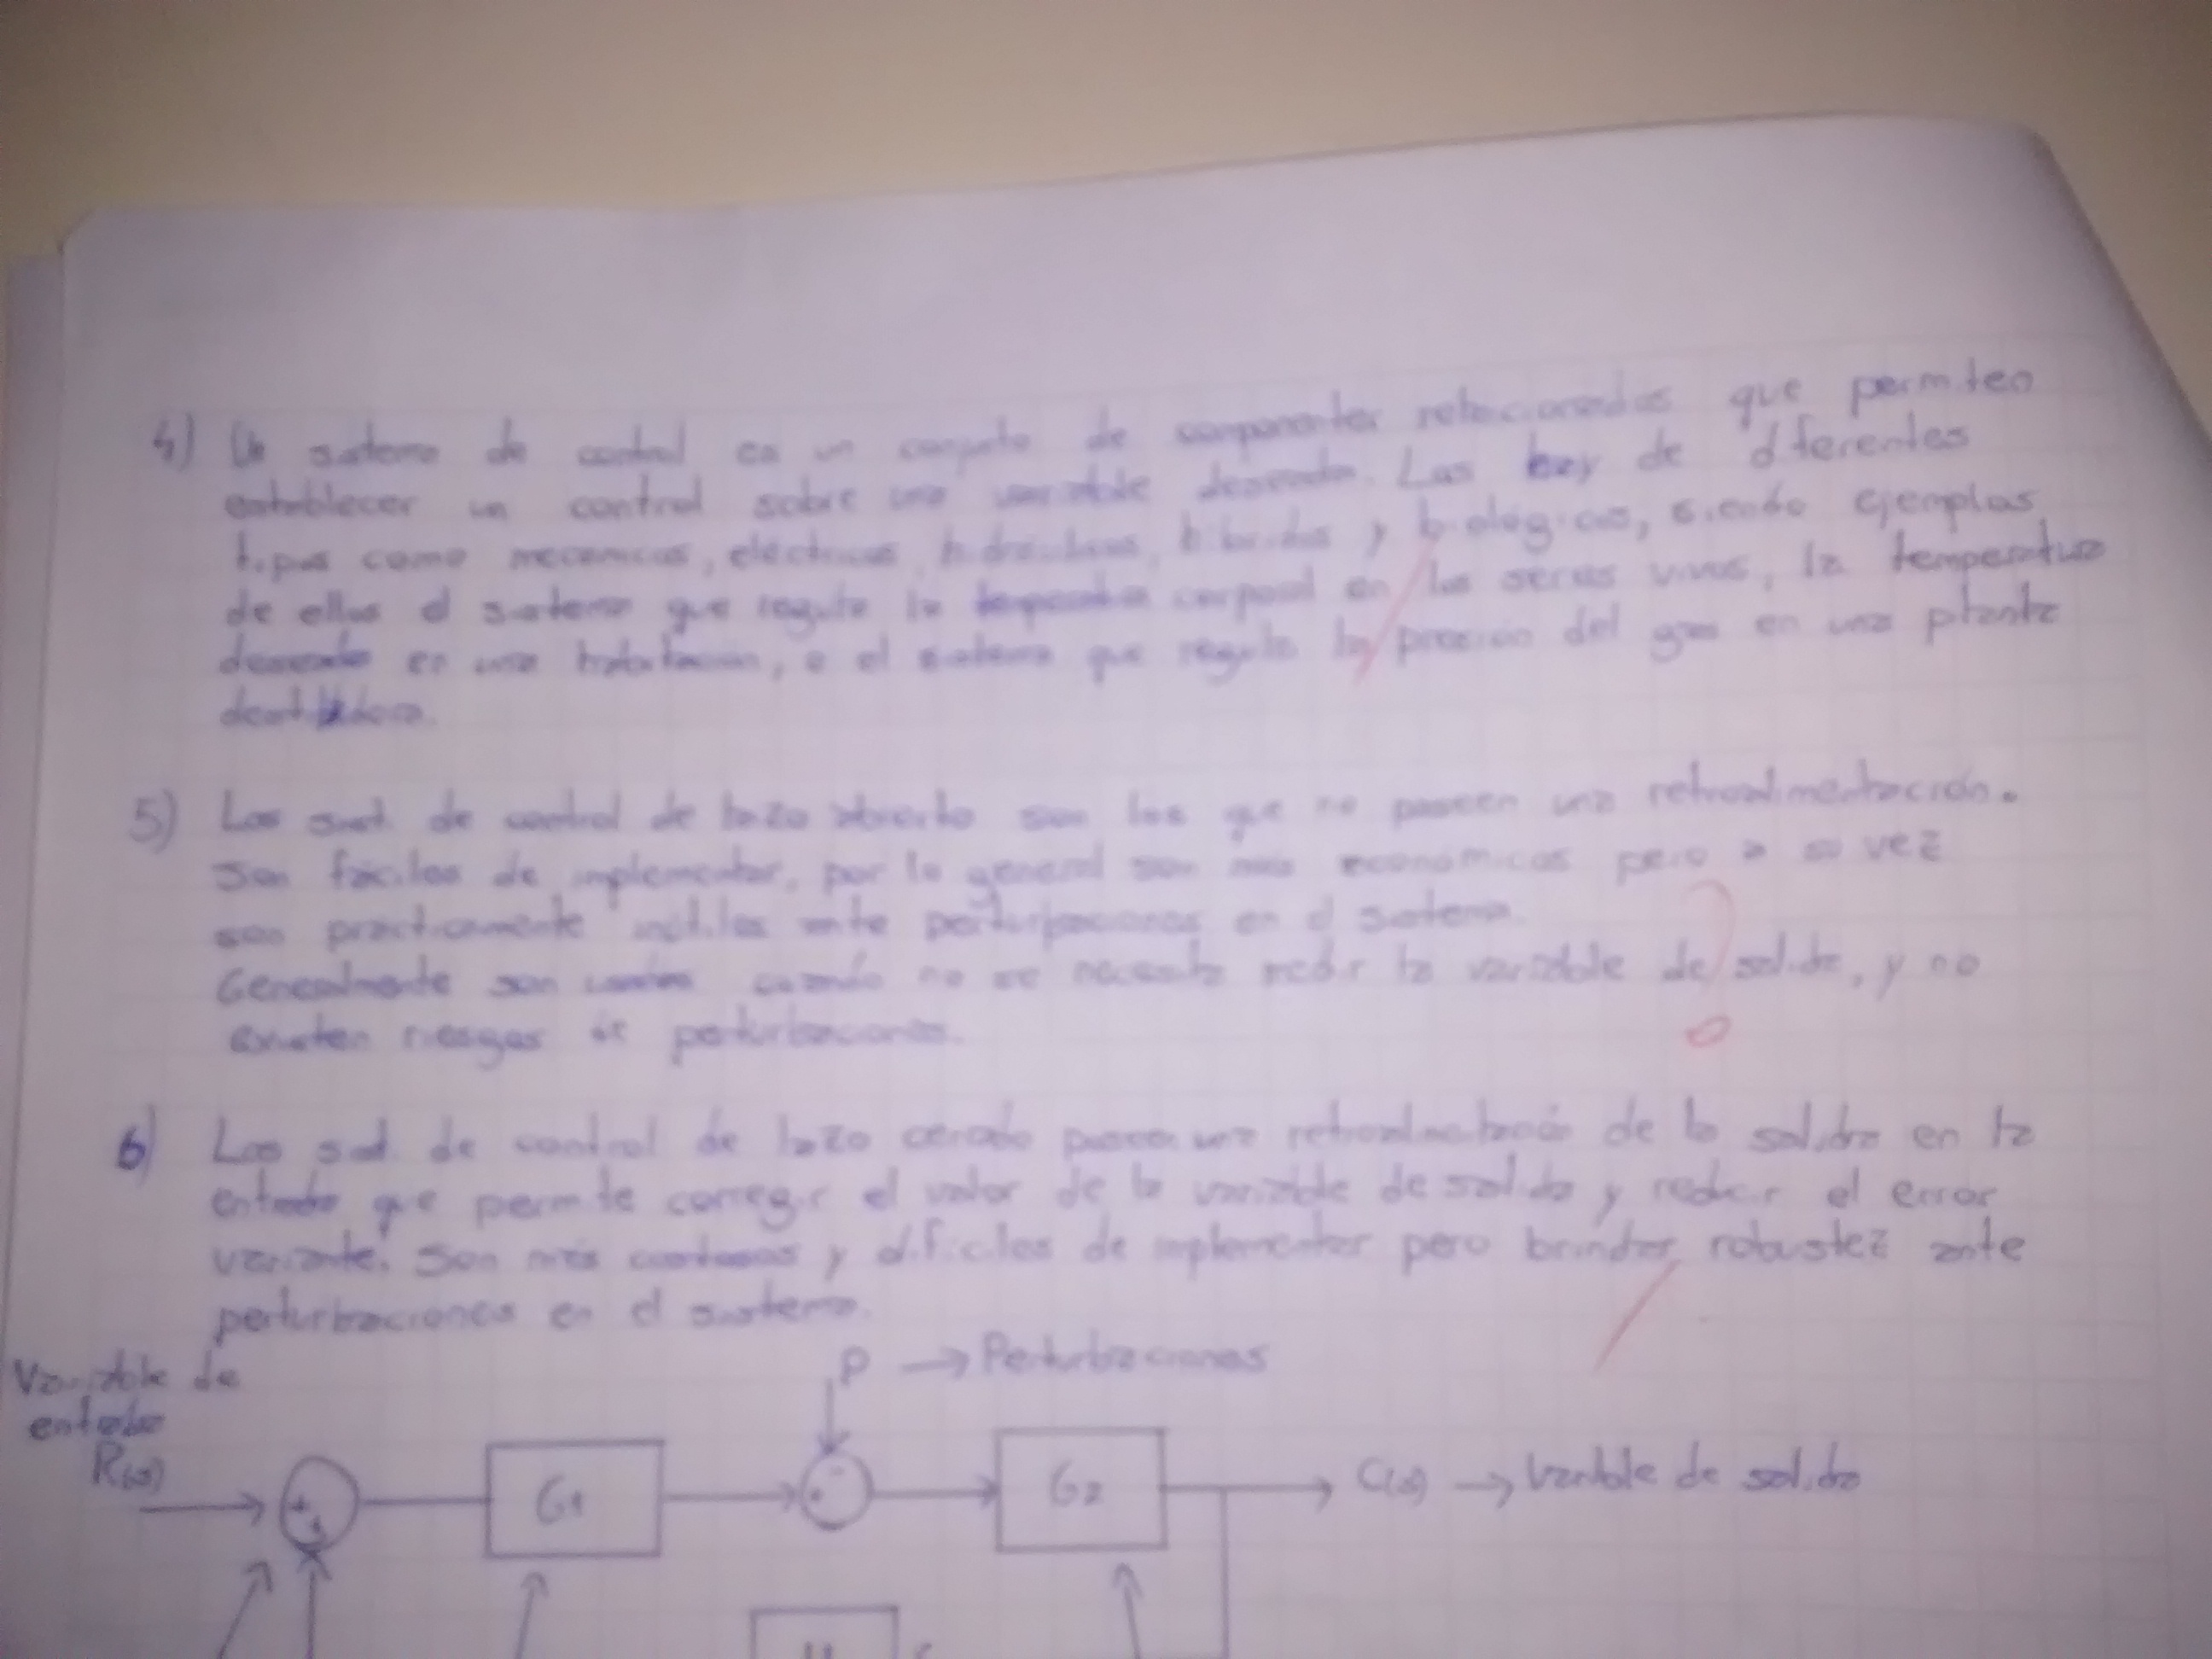 4) Un sistema de control es un conjunto de componentes relacionados que permiten
establecer un control sobre una variable deseada. Los hay de diferentes
tipos como mecánicos, eléctricos, hidráulicos, híbridos y biológicos, siendo ejemplos
de ellos el sistema que regula la temperatura corporal en los seres vivos, la temperatura
deseada en una habitación, o el sistema que regula la presión del gas en una planta
5) Los sist. de control de lazo abierto son los que no poseen una retroalimentación.
Son fáciles de implementar, por lo general son más económicos pero a su vez
son prácticamente inútiles ante perturbaciones en el sistema.
Generalmente son usados cuando no se necesita medir la variable de salida, y no
existen riesgos de perturbaciones.
6) Los sist. de control de lazo cerrado poseen una retroalimentación de la salida en la
entrada que permite corregir el valor de la variable de salida y reducir el error
variante. Son más costosos y difíciles de implementar pero brindan robustez ante
perturbaciones en el sistema.
Variable de
entrada
R(s)
P → Perturbaciones
G1
G2
C(s) → Variable de salida
H